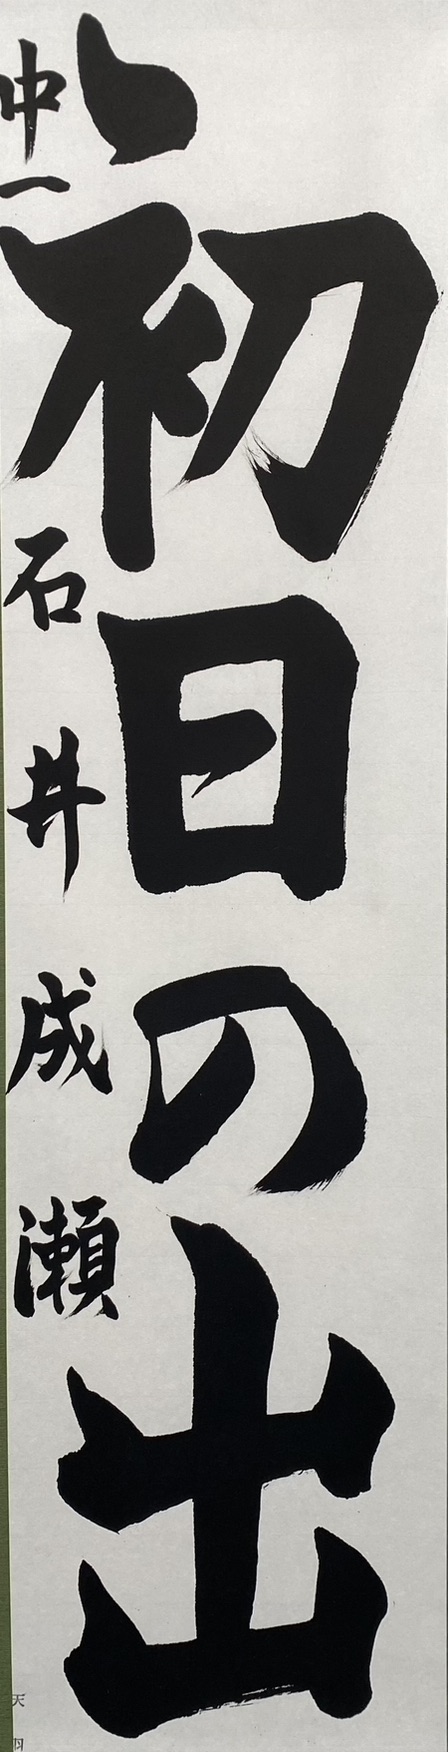 初日の出
中一 石井成瀬